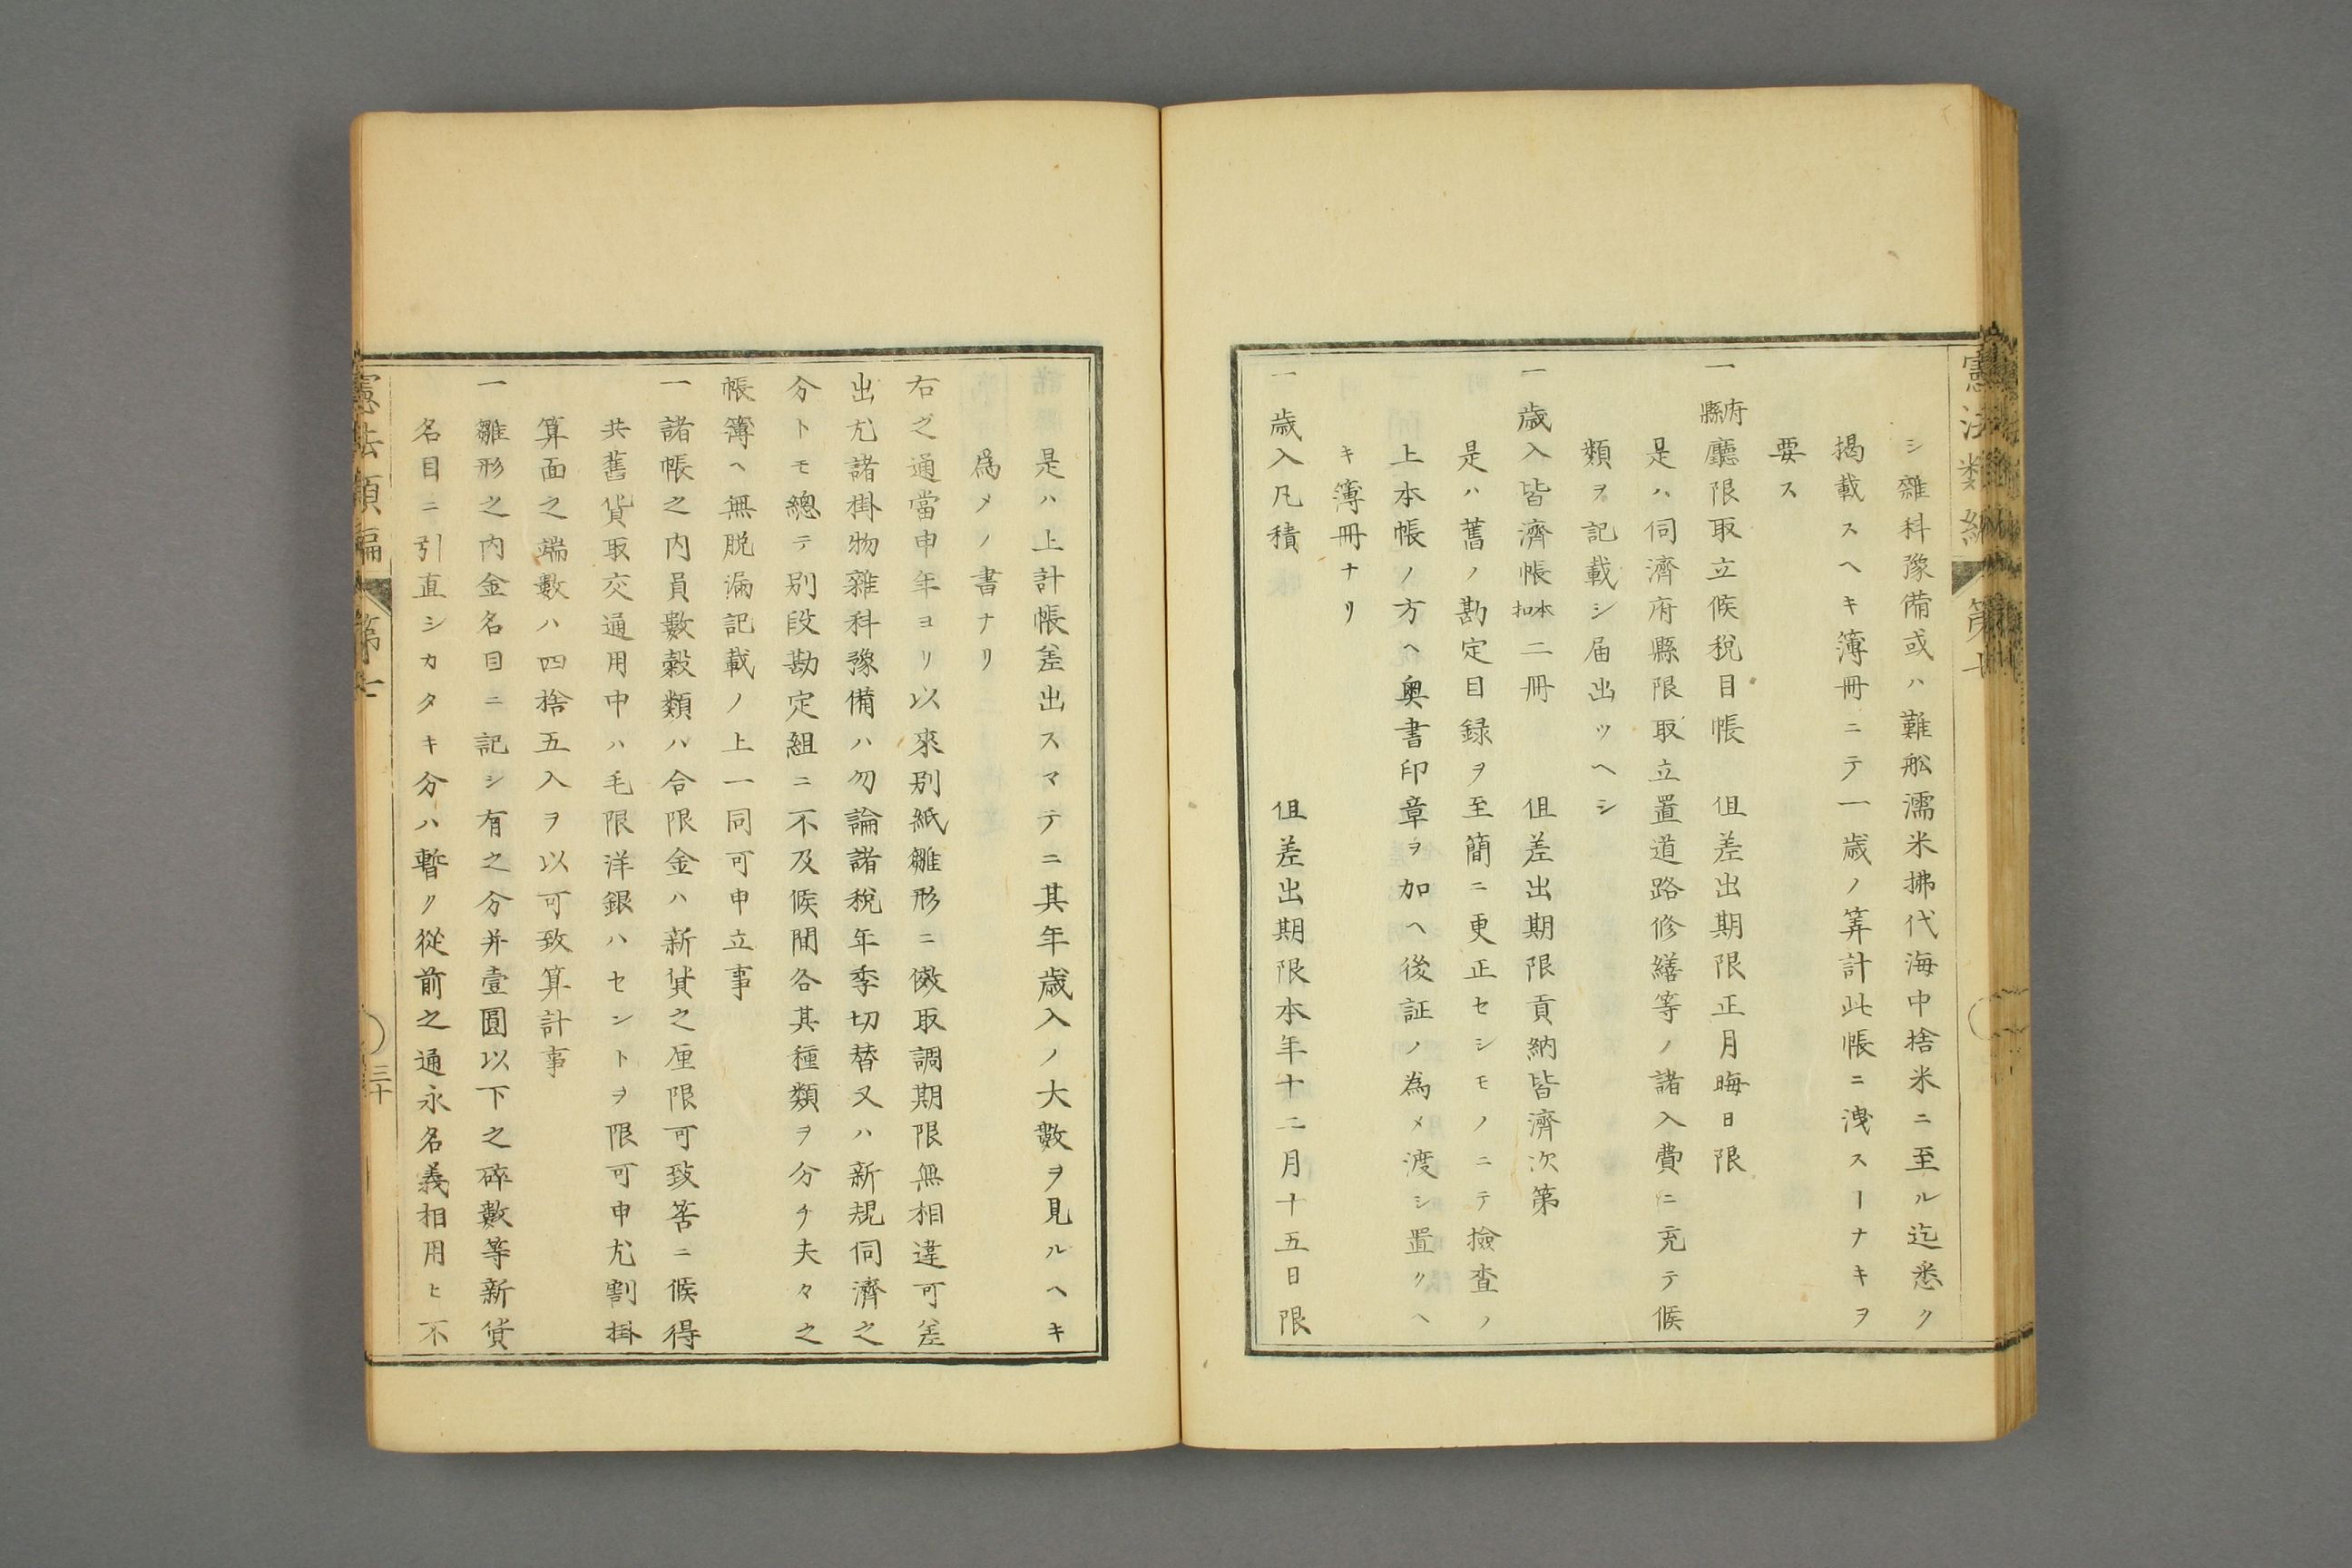 シ雜科豫備或ハ難舩濡米拂代海中捨米ニ至ル迄悉ク
揭載スヘキ簿冊ニテ一歳ノ筭計此帳ニ洩スーナキヲ
要ス
一府縣廳限取立候税目帳 伹差出期限正月晦日限
是ハ伺濟府縣限取立置道路修繕等ノ諸入費ニ充テ候
類ヲ記載シ届出ツヘシ
一歳入皆濟帳本扣二冊 伹差出期限貢納皆濟次第
是ハ舊ノ勘定目録ヲ至簡ニ更正セシモノニテ撿査ノ
上本帳ノ方ヘ奧書印章ヲ加ヘ後証ノ為メ渡シ置クヘ
キ簿冊ナリ
一歳入凡積 伹差出期限本年十二月十五日限
是ハ上計帳差出スマテニ其年歳入ノ大數ヲ見ルヘキ
爲メノ書ナリ
右之通當申年ヨリ以來別紙雛形ニ傚取調期限無相違可差
出尤諸掛物雜科豫備ハ勿論諸税年季切替又ハ新規伺濟之
分トモ總テ别段勘定組ニ不及候間各其種類ヲ分チ夫々之
帳簿ヘ無脱漏記載ノ上一同可申立事
一諸帳之内員數穀類ハ合限金ハ新貨之厘限可致筈ニ候得
共舊貨取交通用中ハ毛限洋銀ハセントヲ限可申尤割掛
算面之端數ハ四捨五入ヲ以可致算計事
一雛形之内金名目ニ記シ有之分并壹圓以下之碎數等新貨
名目ニ引直シカタキ分ハ暫ク從前之通永名義相用ヒ不
憲法類編 第十 三十